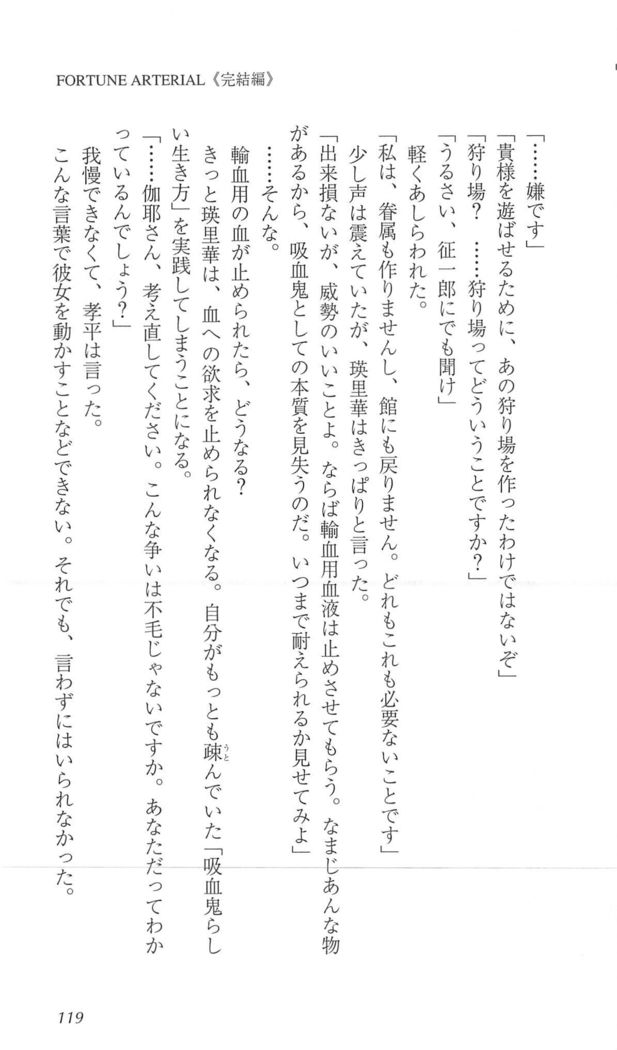 FORTUNE ARTERIAL《完結編》
「……嫌です」
「貴様を遊ばせるために、あの狩り場を作ったわけではないぞ」
「狩り場？　……狩り場ってどういうことですか？」
「うるさい、征一郎にでも聞け」
軽くあしらわれた。
「私は、眷属も作りませんし、館にも戻りません。どれもこれも必要ないことです」
少し声は震えていたが、瑛里華はきっぱりと言った。
「出来損ないが、威勢のいいことよ。ならば輸血用血液は止めさせてもらう。なまじあんな物
があるから、吸血鬼としての本質を見失うのだ。いつまで耐えられるか見せてみよ」
……そんな。
輸血用の血が止められたら、どうなる？
きっと瑛里華は、血への欲求を止められなくなる。自分がもっとも疎んでいた「吸血鬼らし
うと
い生き方」を実践してしまうことになる。
「……伽耶さん、考え直してください。こんな争いは不毛じゃないですか。あなただってわか
っているんでしょう？」
我慢できなくて、孝平は言った。
こんな言葉で彼女を動かすことなどできない。それでも、言わずにはいられなかった。
119